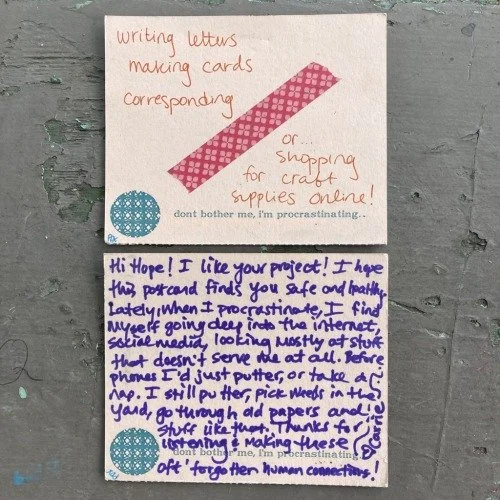 writing letters
making cards
corresponding
or...
shopping
for craft
supplies online!
dont bother me, i'm procrastinating..
Hi Hope! I like your project! I hope
this postcard finds you safe and healthy
Lately, when I procrastinate, I find
myself going deep into the internet,
social media, looking mostly at stuff
that doesn't serve me at all. Before
phones I'd just putter, or take a
nap. I still putter, pick weeds in the
yard, go through old papers and
stuff like that. Thanks for
listening & making these
dont bother me, i'm procrastinating..
oft' forgotten human connections!
Carrie